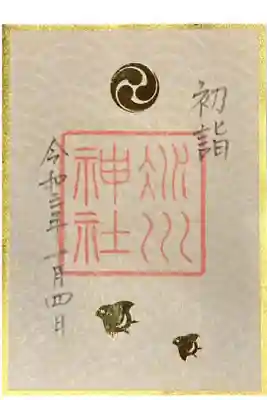 初詣
冰川
神社
令和三年 一月四日